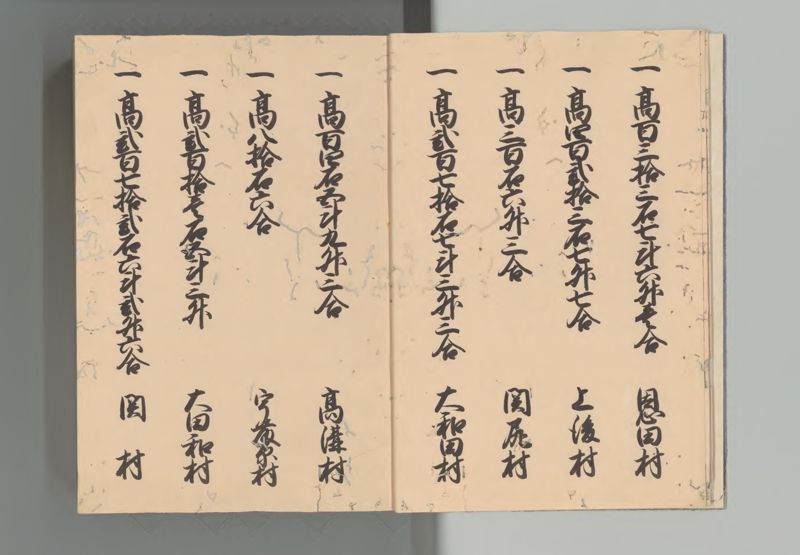 一高百三拾三石七斗六升壱合 恩田村
一高四百弐拾三石七升七合 上後村
一高三百石六升三合 関尻村
一高弐百七拾石七斗三升三合 大和田村
一高百四石五斗九升三合 高溝村
一高八拾石六合
一高弐百拾壱石五斗三升 大田和村
一高弐百七拾弐石六斗弐升六合 関村